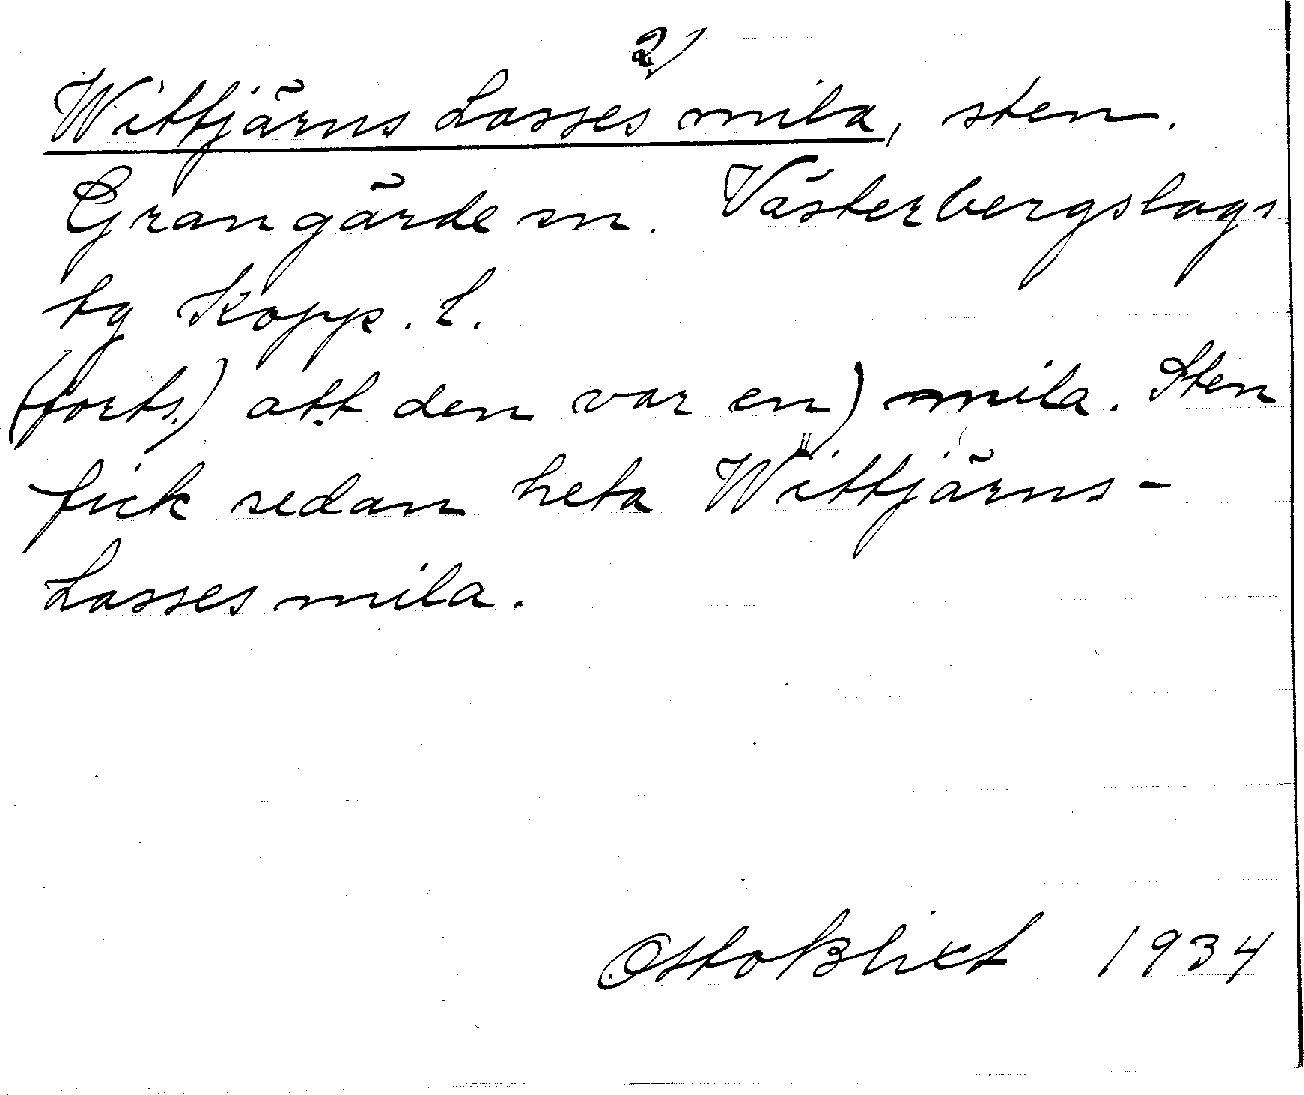 2)
Wittjärns Lasses mila, sten.
Grangärde sn. Västerbergslags
tg Kopp. l.
(forts.) att den var en) mila. Sten
fick sedan heta Wittjärns-
Lasses mila.
Otto Blixt 1934